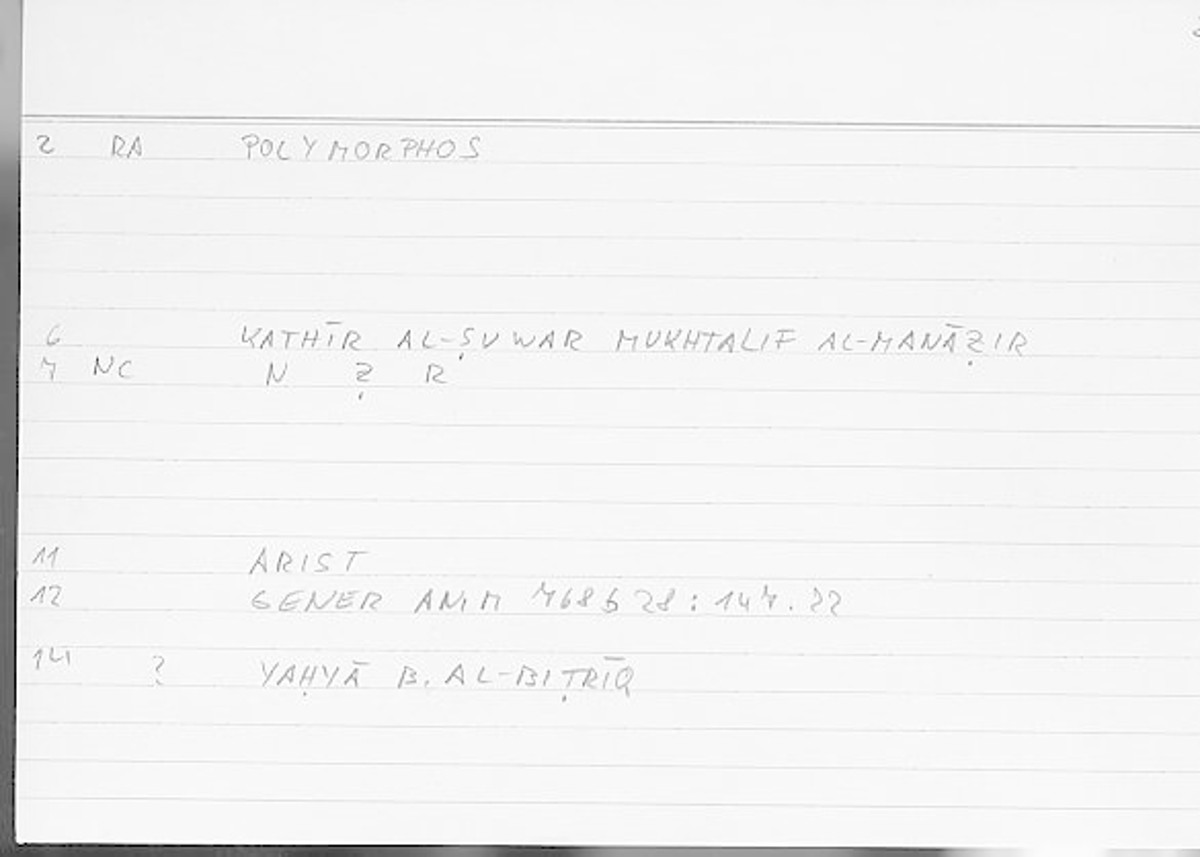 2 RA POLYMORPHOS
6 KATHĪR AL-ṢUWAR MUKHTALIF AL-MANĀẒIR
7 NC N Ẓ R
11 ARIST
12 GENER ANIM 768b28: 147.22
14 ? YAḤYĀ B. AL-BIṬRĪQ